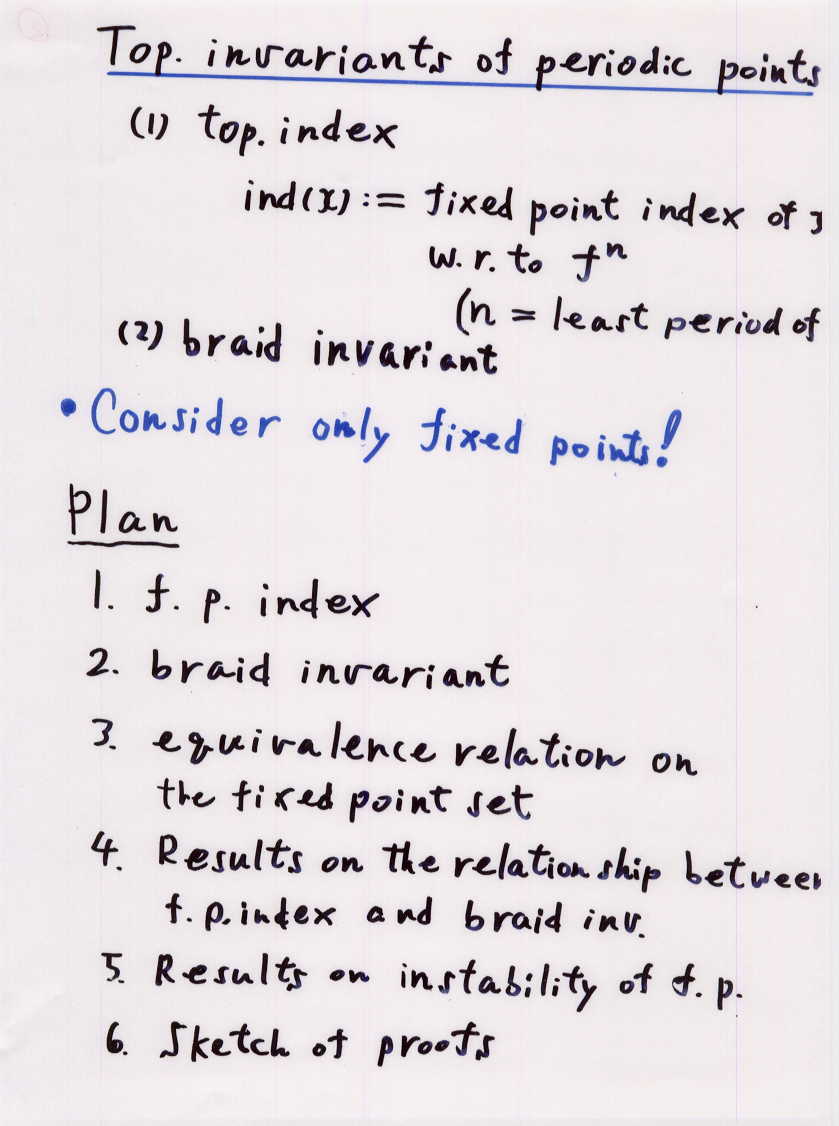 Top. invariants of periodic points
(1) top. index
ind(x) := fixed point index of
w. r. to fⁿ
(n = least period of
(2) braid invariant
• Consider only fixed points!
Plan
1. f. p. index
2. braid invariant
3. equivalence relation on
the fixed point set
4. Results on the relationship between
f. p. index and braid inv.
5. Results on instability of f. p.
6. Sketch of proofs